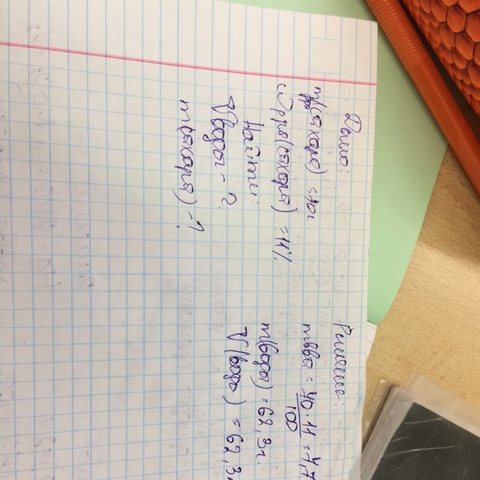 Дано:
m(сахара) = 70г
ω р.ра (сахара) = 11%
Найти:
V воды - ?
m(сахара) - ?
Решение:
mвва = 70·11 / 100 = 7,7
m(воды) = 62,3г.
V(воды) = 62,3